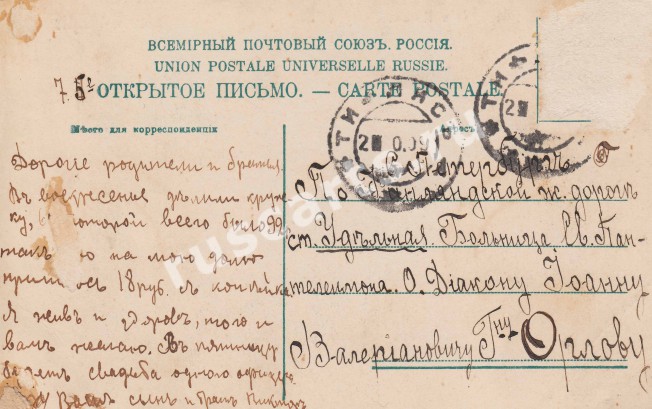 ВСЕМІРНЫЙ ПОЧТОВЫЙ СОЮЗЪ. РОССІЯ.
UNION POSTALE UNIVERSELLE RUSSIE.
ОТКРЫТОЕ ПИСЬМО. — CARTE POSTALE.
Мѣсто для корреспонденціи
Адресъ
Дорогіе родители и братья.
Въ воскресенье дѣлили круж
ку, въ которой всего было 92
такъ на мою долю
18 руб. копѣйка
Я живъ и здоровъ, того и
вамъ желаю. Въ пятницу
будетъ свадьба одного
Вашъ сынъ и братъ
С. Петербургъ
По Финляндской ж. дорогѣ
ст. Удѣльная Больница Св. Пан-
телеимона О. Діакону Іоанну
Валеріановичу Гну Орлову